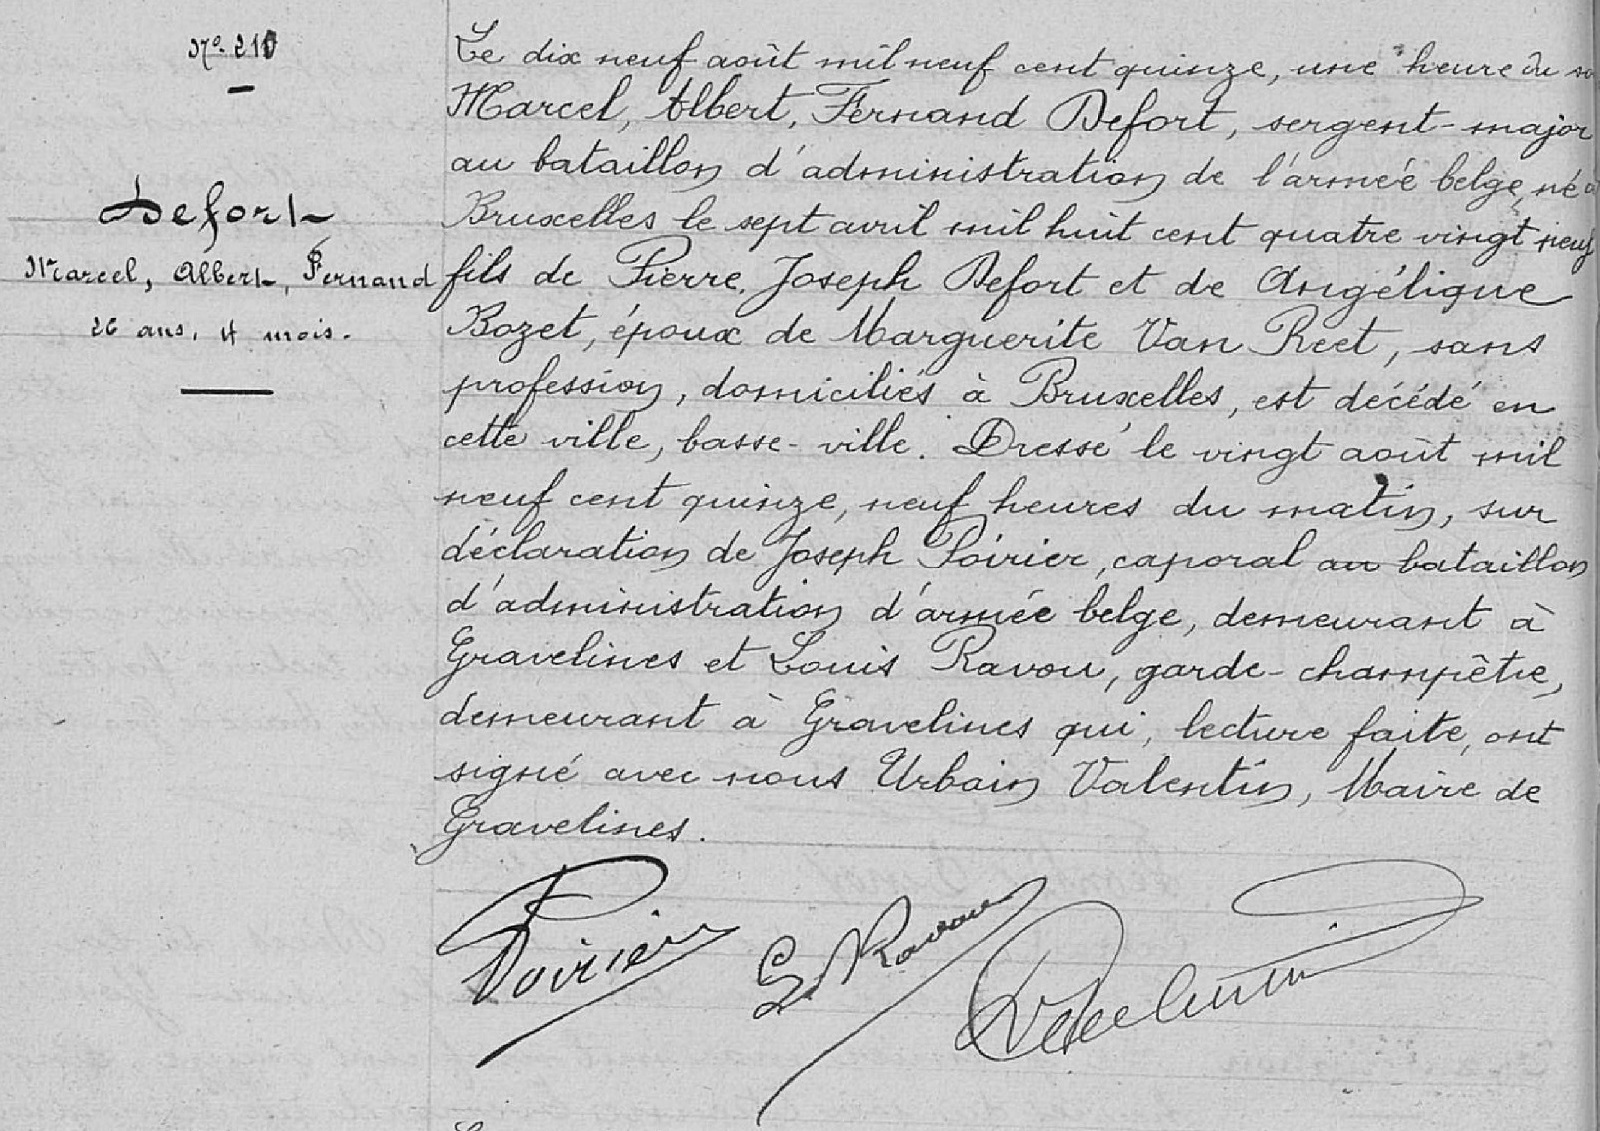 No 210
Defort
Marcel, Albert, Fernand
26 ans, 4 mois.
Le dix neuf août mil neuf cent quinze, une heure du
Marcel, Albert, Fernand Defort, sergent-major
au bataillon d'administration de l'armée belge, né à
Bruxelles le sept avril mil huit cent quatre vingt neuf
fils de Pierre, Joseph Defort et de Angélique
Bozet, époux de Marguerite Van Reet, sans
profession, domiciliés à Bruxelles, est décédé en
cette ville, basse-ville. Dressé le vingt août mil
neuf cent quinze, neuf heures du matin, sur
déclaration de Joseph Poirier, caporal au bataillon
d'administration d'armée belge, demeurant à
Gravelines et Louis Ravou, garde-champêtre,
demeurant à Gravelines qui, lecture faite, ont
signé avec nous Urbain Valentin, Maire de
Gravelines.
Poirier